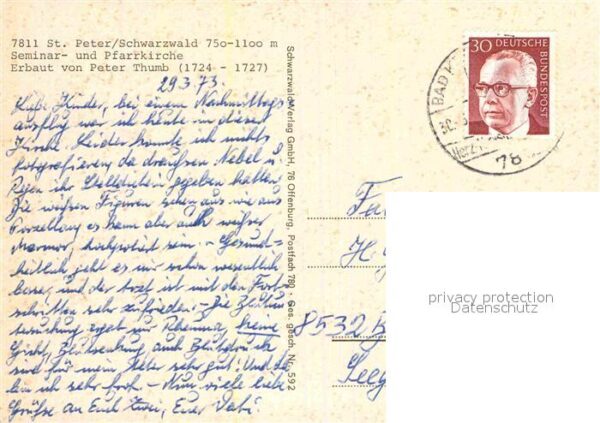 7811 St. Peter/Schwarzwald 750-1100 m
Seminar- und Pfarrkirche
Erbaut von Peter Thumb (1724 - 1727)
29.3.73.
Liebe Kinder, bei einem Nachmittags-
ausflug war ich heute in dieser
Kirche. Leider konnte ich nichts
fotografieren da draußen Nebel u.
Regen ihr Stelldichein gegeben hatten.
Die weißen Figuren sehen aus wie aus
Porzellan es kann aber auch weißer
Marmor, hochpoliert sein. - Gesund-
heitlich geht es mir schon wesentlich
besser, und der Arzt ist mit den Fort-
schritten sehr zufrieden - Die Blutun-
tersuchung ergab nur Rheuma, keine
Gicht, Blutsenkung, auch Blutdruck
sind für mein Alter sehr gut! Und da
bin ich sehr froh. - Nun viele liebe
Grüße an Euch zwei, Euer Vati.
Schwarzwald-Verlag GmbH, 76 Offenburg, Postfach 780 - Ges. gesch. Nr. 592
30 DEUTSCHE
BUNDESPOST
BAD
78
Fa
H.
8532 B
Seeg
privacy protection
Datenschutz